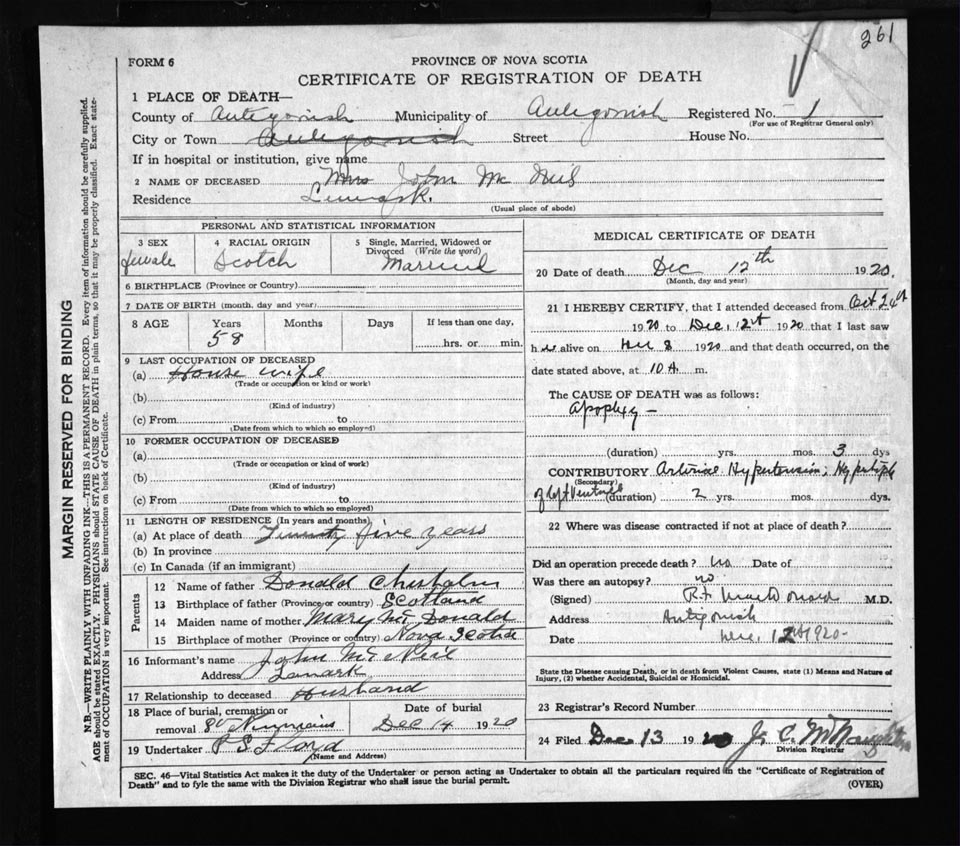 261
FORM 6
PROVINCE OF NOVA SCOTIA
CERTIFICATE OF REGISTRATION OF DEATH
1 PLACE OF DEATH—
County of Antigonish Municipality of Antigonish Registered No. 1
(For use of Registrar General only)
City or Town Antigonish Street House No.
If in hospital or institution, give name
2 NAME OF DECEASED Mrs John Mc Neil
Residence Lanark.
(Usual place of abode)
PERSONAL AND STATISTICAL INFORMATION
3 SEX female
4 RACIAL ORIGIN Scotch
5 Single, Married, Widowed or Divorced (Write the word) Married
6 BIRTHPLACE (Province or Country)
7 DATE OF BIRTH (month, day and year)
8 AGE Years 58 Months Days If less than one day, hrs. or min.
9 LAST OCCUPATION OF DECEASED
(a) House wife
(Trade or occupation or kind or work)
(b)
(Kind of industry)
(c) From to
(Date from which to which so employed)
10 FORMER OCCUPATION OF DECEASED
(a)
(Trade or occupation or kind of work)
(b)
(Kind of industry)
(c) From to
(Date from which to which so employed)
11 LENGTH OF RESIDENCE (In years and months)
(a) At place of death Twenty five years
(b) In province
(c) In Canada (if an immigrant)
Parents
12 Name of father Donald Chisholm
13 Birthplace of father (Province or country) Scotland
14 Maiden name of mother Mary McDonald
15 Birthplace of mother (Province or country) Nova Scotia
16 Informant's name John McNeil
Address Lanark
17 Relationship to deceased Husband
18 Place of burial, cremation or removal St Ninnians Date of burial Dec 14 1920
19 Undertaker P S Floyd
(Name and Address)
MEDICAL CERTIFICATE OF DEATH
20 Date of death Dec 12th 1920.
(Month, day and year)
21 I HEREBY CERTIFY, that I attended deceased from Oct 24th
1920 to Dec. 12th 1920 that I last saw
her alive on Dec 8 1920 and that death occurred, on the
date stated above, at 10 A. m.
The CAUSE OF DEATH was as follows:
Apoplexy —
(duration) yrs. mos. 3 dys
CONTRIBUTORY Arterial Hypertension; Hypertrophy
(Secondary)
of left Ventricle (duration) 2 yrs. mos. dys.
22 Where was disease contracted if not at place of death?
Did an operation precede death? no Date of
Was there an autopsy? no
(Signed) R. F. MacDonald M.D.
Address Antigonish
Date Dec. 12th 1920-
State the Disease causing Death, or in death from Violent Causes, state (1) Means and Nature of
Injury, (2) whether Accidental, Suicidal or Homicidal.
23 Registrar's Record Number
24 Filed Dec 13 1920 J. C. McNaughton
Division Registrar
SEC. 46—Vital Statistics Act makes it the duty of the Undertaker or person acting as Undertaker to obtain all the particulars required in the "Certificate of Registration of
Death" and to fyle the same with the Division Registrar who shall issue the burial permit.
(OVER)
MARGIN RESERVED FOR BINDING
N.B.—WRITE PLAINLY WITH UNFADING INK—THIS IS A PERMANENT RECORD. Every item of information should be carefully supplied.
AGE should be stated EXACTLY. PHYSICIANS should STATE CAUSE OF DEATH in plain terms, so that it may be properly classified. Exact state-
ment of OCCUPATION is very important. See instructions on back of Certificate.